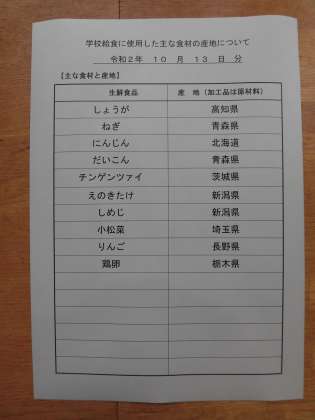 学校給食に使用した主な食材の産地について
令和2年 10 月 13 日 分
【主な食材と産地】
生鮮食品 産 地（加工品は原材料）
しょうが 高知県
ねぎ 青森県
にんじん 北海道
だいこん 青森県
チンゲンツァイ 茨城県
えのきたけ 新潟県
しめじ 新潟県
小松菜 埼玉県
りんご 長野県
鶏卵 栃木県